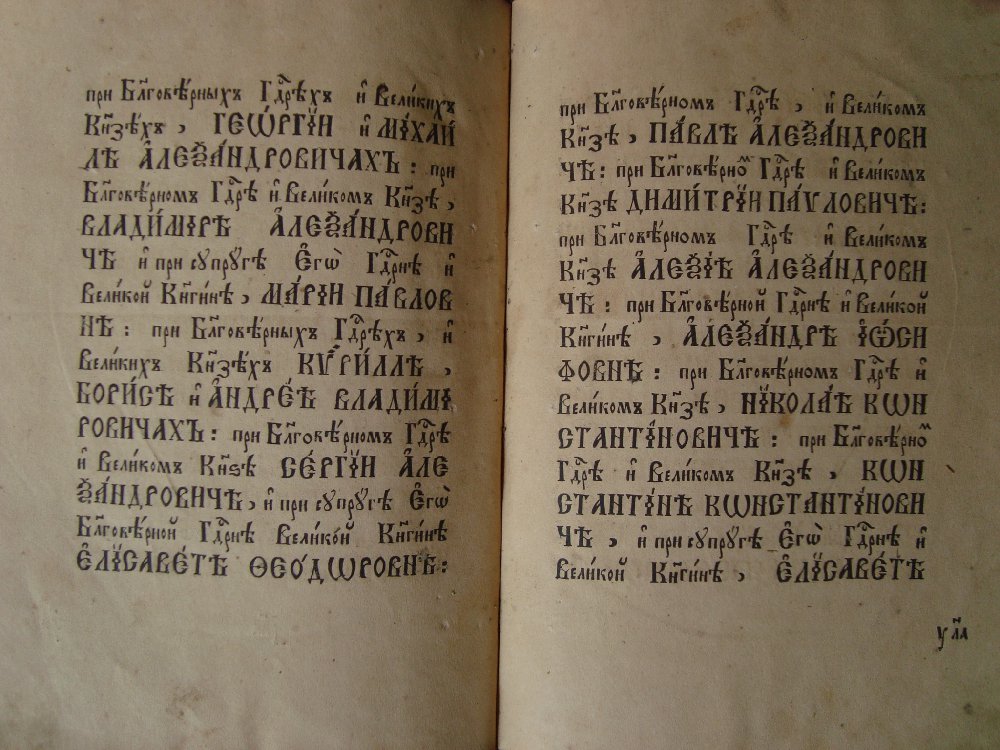 при Бл҃говѣ́рныхъ Гдⷭ҇рѣхъ и҆ Вели́кихъ
Кн҃зѣхъ, ГЕѠ́РГІИ и҆ МІХАИ́
ЛѢ А҆ЛЕѮА́НДРОВИЧАХЪ: при
Бл҃говѣ́рномъ Гдⷭ҇рѣ и҆ Вели́комъ Кн҃зѣ,
ВЛАДИ́МІРѢ А҆ЛЕѮА́НДРОВИ
ЧѢ и҆ при сꙋпрꙋ́гѣ Е҆гѡ̀ Гдⷭ҇рнѣ и҆
Вели́кой Кн҃ги́нѣ, МАРІ́И ПА́ВЛОВ
НѢ: при Бл҃говѣ́рныхъ Гдⷭ҇рѣхъ, и҆
Вели́кихъ Кн҃зѣхъ КѴРИ́ЛЛѢ,
БОРИ́СѢ и҆ А҆НДРЕ́Ѣ ВЛАДИ́МІ
РОВИЧАХЪ: при Бл҃говѣ́рномъ Гдⷭ҇рѣ
и҆ Вели́комъ Кн҃ѕѣ СЕ́РГІИ А҆ЛЕ
ѮА́НДРОВИЧѢ, и҆ при сꙋпрꙋ́гѣ Е҆гѡ̀
Бл҃говѣ́рной Гдⷭ҇рнѣ Вели́кой Кн҃ги́нѣ
Е҆ЛІСАВЕ́ТѢ ѲЕО́ДѠРОВНѢ:
при Бл҃говѣ́рномъ Гдⷭ҇рѣ, и҆ Вели́комъ
Кн҃зѣ, ПА́ВЛѢ А҆ЛЕѮА́НДРОВИ
ЧѢ: при Бл҃говѣ́рноⷨ Гдⷭ҇рѣ и҆ Вели́комъ
Кн҃зѣ ДИМИ́ТРІИ ПА́ѴЛОВИЧѢ:
при Бл҃говѣ́рномъ Гдⷭ҇рѣ и҆ Вели́комъ
Кн҃зѣ А҆ЛЕѮІ́Ѣ А҆ЛЕѮА́НДРОВИ
ЧѢ: при Бл҃говѣ́рной Гдⷭ҇рнѣ и҆ Вели́кой
Кн҃ги́нѣ, А҆ЛЕѮА́НДРѢ І҆Ѡ́СИ
ФОВНѢ: при Бл҃говѣ́рномъ Гдⷭ҇рѣ и҆
Вели́комъ Кн҃зѣ, НІКОЛА́Ѣ КѠН
СТАНТІ́НОВИЧѢ: при Бл҃говѣ́рноⷨ
Гдⷭ҇рѣ и҆ Вели́комъ Кн҃зѣ, КѠН
СТАНТІ́НѢ КѠНСТАНТІ́НОВИ
ЧѢ, и҆ при сꙋпрꙋ́гѣ Е҆гѡ̀ Гдⷭ҇рнѣ и҆
Вели́кой Кн҃ги́нѣ, Е҆ЛІСАВЕ́ТѢ
ул҃а